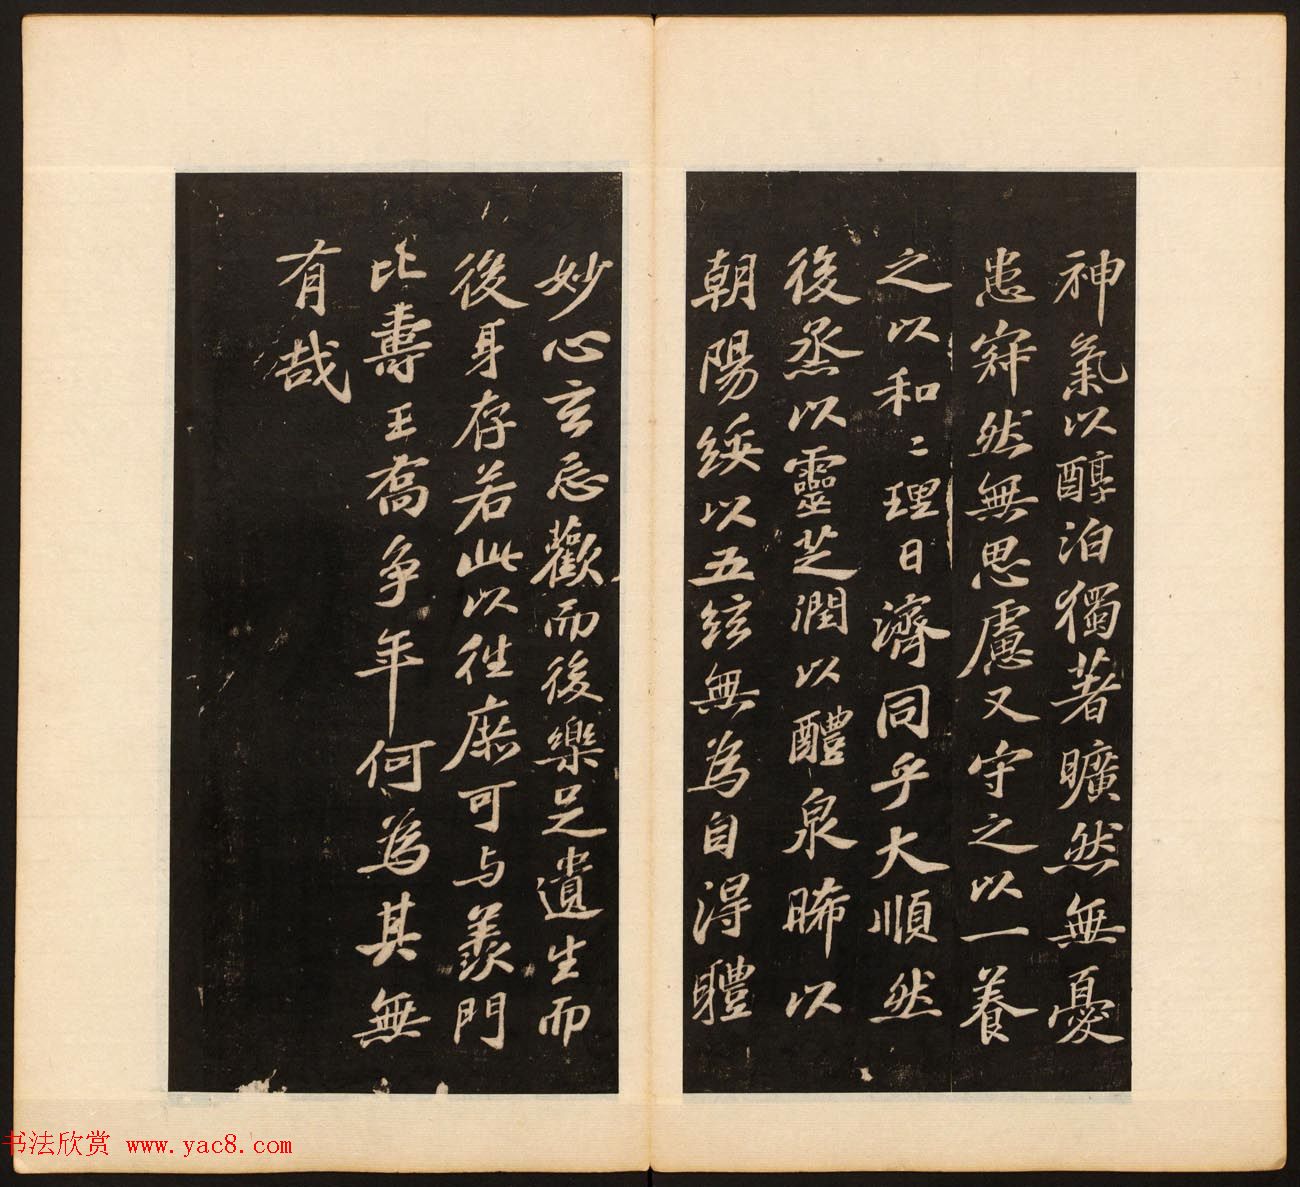 神氣以醇泊獨著曠然無憂
患寂然無思慮又守之以一養
之以和〻理日濟同乎大順然
後烝以靈芝潤以醴泉晞以
朝陽綏以五絃無為自得體
妙心玄忘歡而後樂足遺生而
後身存若此以往庶可与羨門
比壽王喬爭年何為其無
有哉
书法欣赏 www.yac8.com